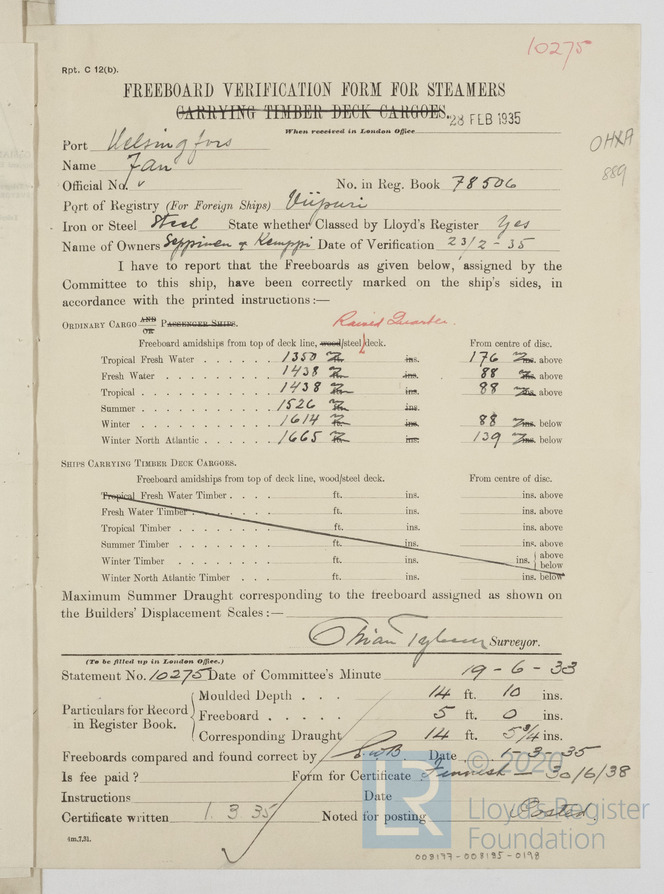 10275
Rpt. C 12(b).
FREEBOARD VERIFICATION FORM FOR STEAMERS
CARRYING TIMBER DECK CARGOES.
28 FEB 1935
When received in London Office
Port Helsingfors
OHXA
889
Name Fan
Official No. No. in Reg. Book 78506
Port of Registry (For Foreign Ships) Viipuri
Iron or Steel Steel State whether Classed by Lloyd's Register Yes
Name of Owners Seppinen & Kemppi Date of Verification 23/2-35
I have to report that the Freeboards as given below, assigned by the
Committee to this ship, have been correctly marked on the ship's sides, in
accordance with the printed instructions:—
ORDINARY CARGO AND OR PASSENGER SHIPS. Raised Quarter.
Freeboard amidships from top of deck line, wood/steel deck. From centre of disc.
Tropical Fresh Water 1350 ins. 176 ins. above
Fresh Water 1438 ins. 88 ins. above
Tropical 1438 ins. 88 ins. above
Summer 1526 ins.
Winter 1614 ins. 88 ins. below
Winter North Atlantic 1665 ins. 139 ins. below
SHIPS CARRYING TIMBER DECK CARGOES.
Freeboard amidships from top of deck line, wood/steel deck. From centre of disc.
Tropical Fresh Water Timber ft. ins. ins. above
Fresh Water Timber ft. ins. ins. above
Tropical Timber ft. ins. ins. above
Summer Timber ft. ins. ins. above
Winter Timber ft. ins. ins. above below
Winter North Atlantic Timber ft. ins. ins. below
Maximum Summer Draught corresponding to the freeboard assigned as shown on
the Builders' Displacement Scales:—
Surveyor.
(To be filled up in London Office.)
Statement No. 10275 Date of Committee's Minute 19-6-33
Particulars for Record in Register Book.
Moulded Depth 14 ft. 10 ins.
Freeboard 5 ft. 0 ins.
Corresponding Draught 14 ft. 5 3/4 ins.
Freeboards compared and found correct by Date 1-3-35
Is fee paid? Form for Certificate Finnish — 30/6/38
Instructions Date
Certificate written 1.3.35 Noted for posting Posted.
4m.7.31.
© 2020
LR
Lloyd's Register
Foundation
008177-008195-0198